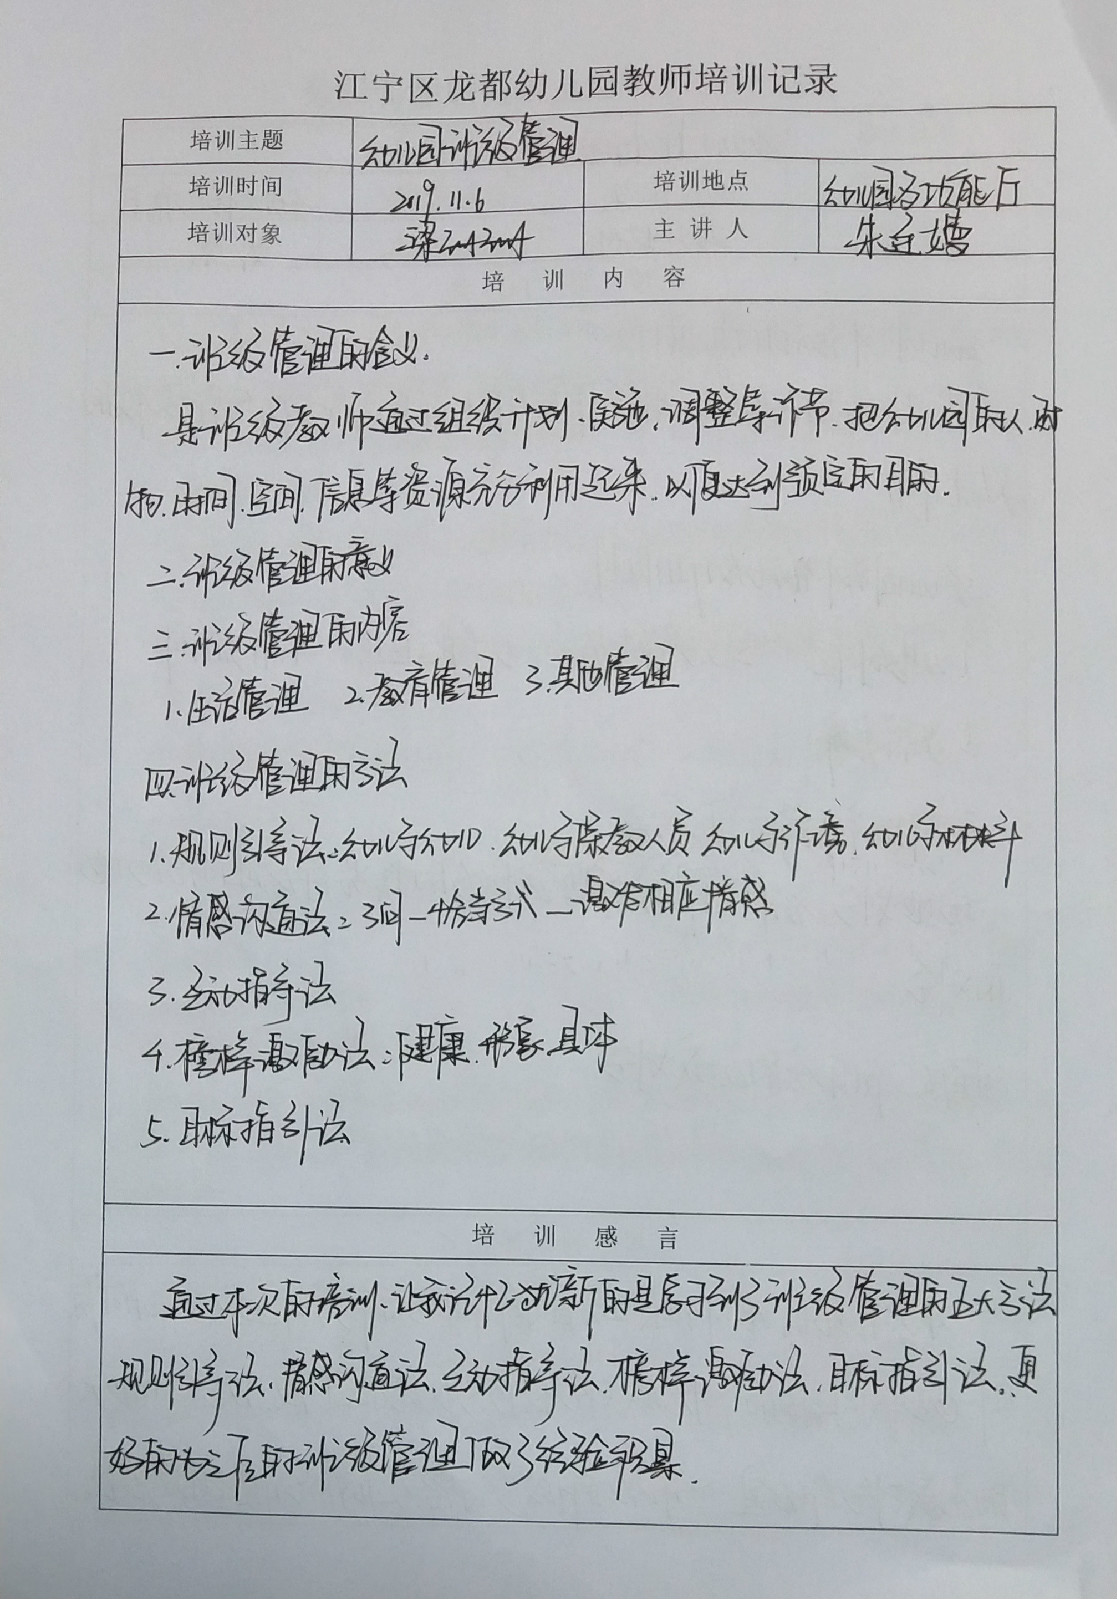 江宁区龙都幼儿园教师培训记录
培训主题 幼儿园班级管理
培训时间 2019.11.6 培训地点 幼儿园多功能厅
培训对象 梁 主讲人 朱
培训内容
一.班级管理的含义.
是班级教师通过组织计划、实施、调整等环节.把幼儿园的人.财
物.时间.空间.信息等资源充分利用起来.以便达到预定的目的.
二.班级管理的意义
三.班级管理的内容
1.生活管理 2.教育管理 3.其他管理
四.班级管理的方法
1.规则引导法:幼儿与幼儿.幼儿与保教人员 幼儿与环境.幼儿与材料
2.情感沟通法: 激发相应情感
3.互动指导法
4.榜样激励法:健康.形象.具体
5.目标指引法
培训感言
通过本次的培训、让我记忆犹新的是学习到了班级管理的五大方法
规则引导法、情感沟通法、互动指导法、榜样激励法、目标指引法。更
好的为之后的班级管理做了经验积累.